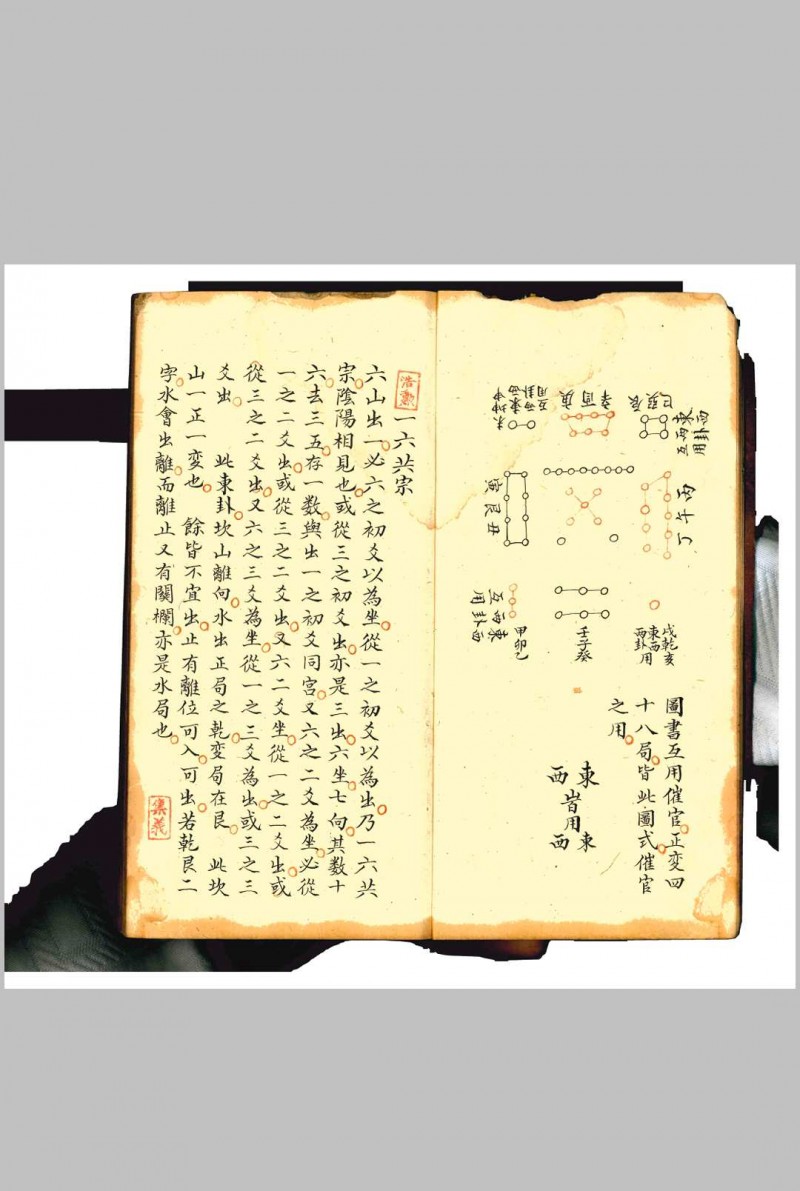 東西
西卦
互用
巳巽辰
丙午丁
戌乾亥
東西
西卦用
辛酉庚
壬子癸
未坤申
東西
西卦
互用
寅艮丑
甲卯乙
東西
西卦
互用
圖書互用催官正變四
十八局皆此圖式催官
之用
東 東
皆用
西 西
浩勳
一六共宗
六山出一必六之初爻以為坐從一之初爻以為出乃一六共
宗陰陽相見也或從三之初爻出亦是三出六坐七向其數十
六去三五存一數與出一之初爻同宮又六之二爻為坐必從
一之二爻出或從三之二爻出又六二爻坐從一之二爻出或
從三之二爻出又六之三爻為坐從一之三爻為出或三之三
爻出 此東卦坎山離向水出正局之乾變局在艮 此坎
山一正一变也 餘皆不宜出止有離位可入可出若乾艮二
字水會出離而離止又有關欄亦是水局也
集義